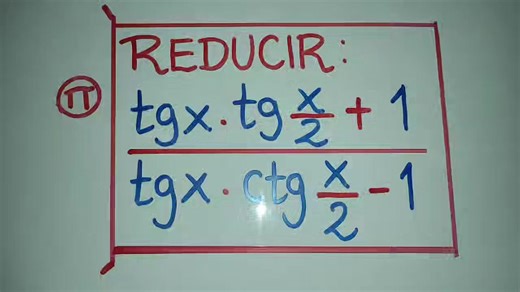 REDUCIR:
π
tgx · tg x/2 + 1
tgx · ctg x/2 - 1